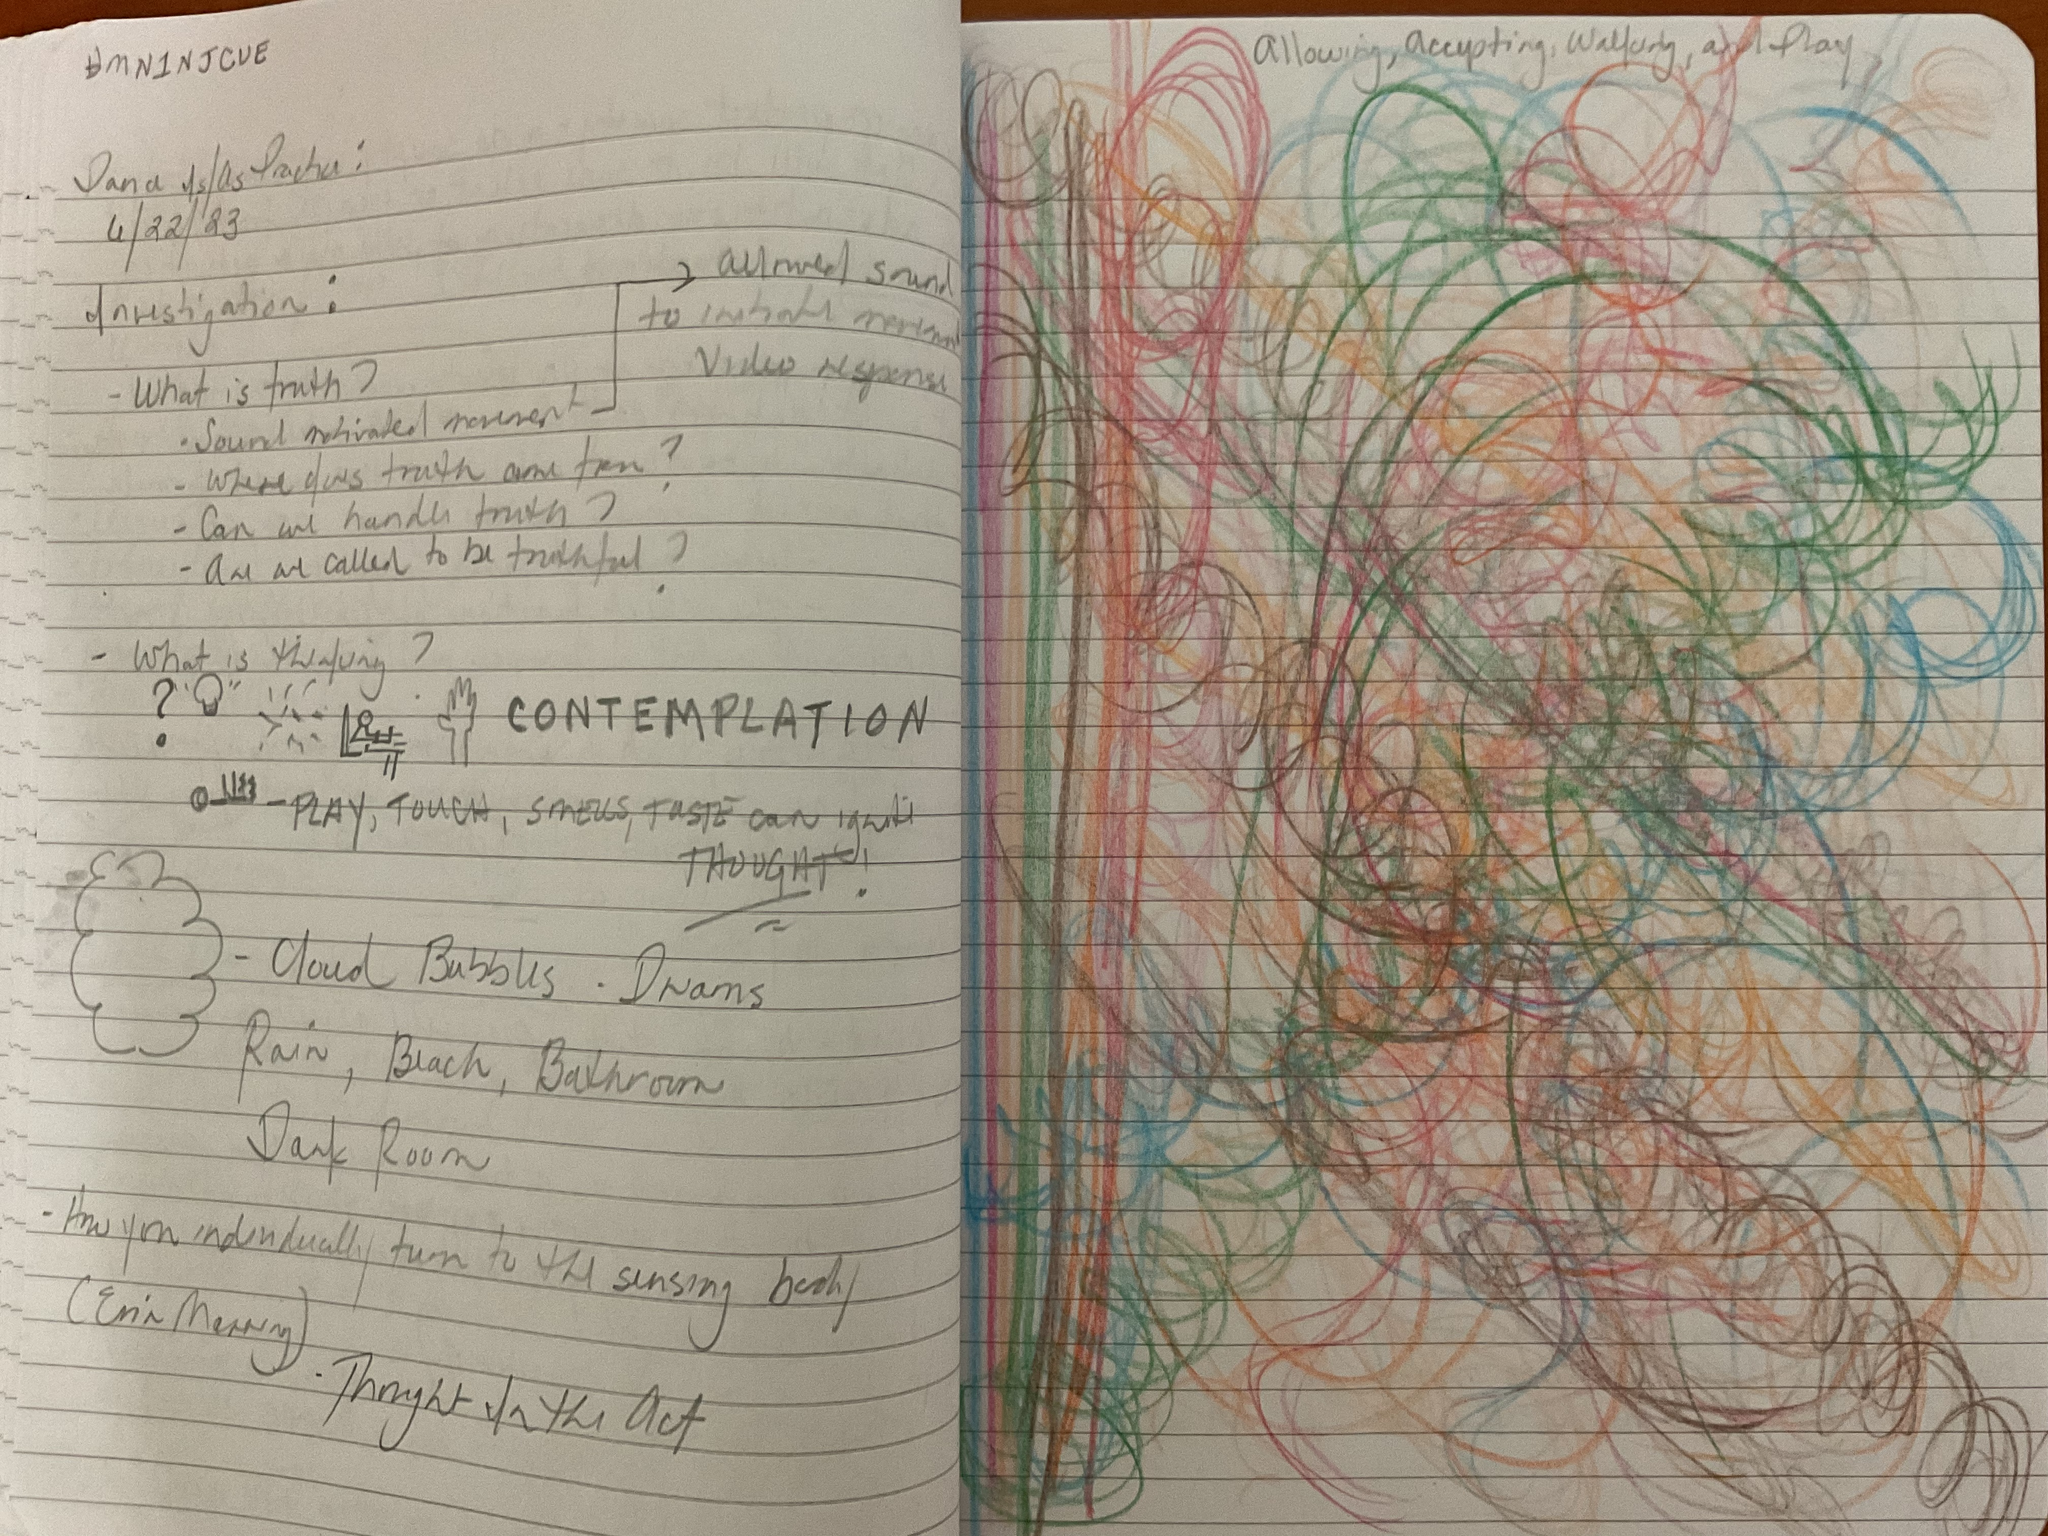 Dance Is/As Practice:
4/22/23
Investigation:
allowed sound
to initiate movement
Video response
- What is truth?
• Sound motivated movement
- Where does truth come from?
- Can we handle truth?
- Are we called to be truthful?
- What is thinking?
? CONTEMPLATION
- PLAY, TOUCH, SMELLS, TASTE can ignite
THOUGHT!
- Cloud Bubbles . Dreams
Rain, Beach, Bathroom
Dark Room
- How you individually turn to the sensing body
(Erin Manning)
. Thought In the Act
Allowing, Accepting, Walking, and Play